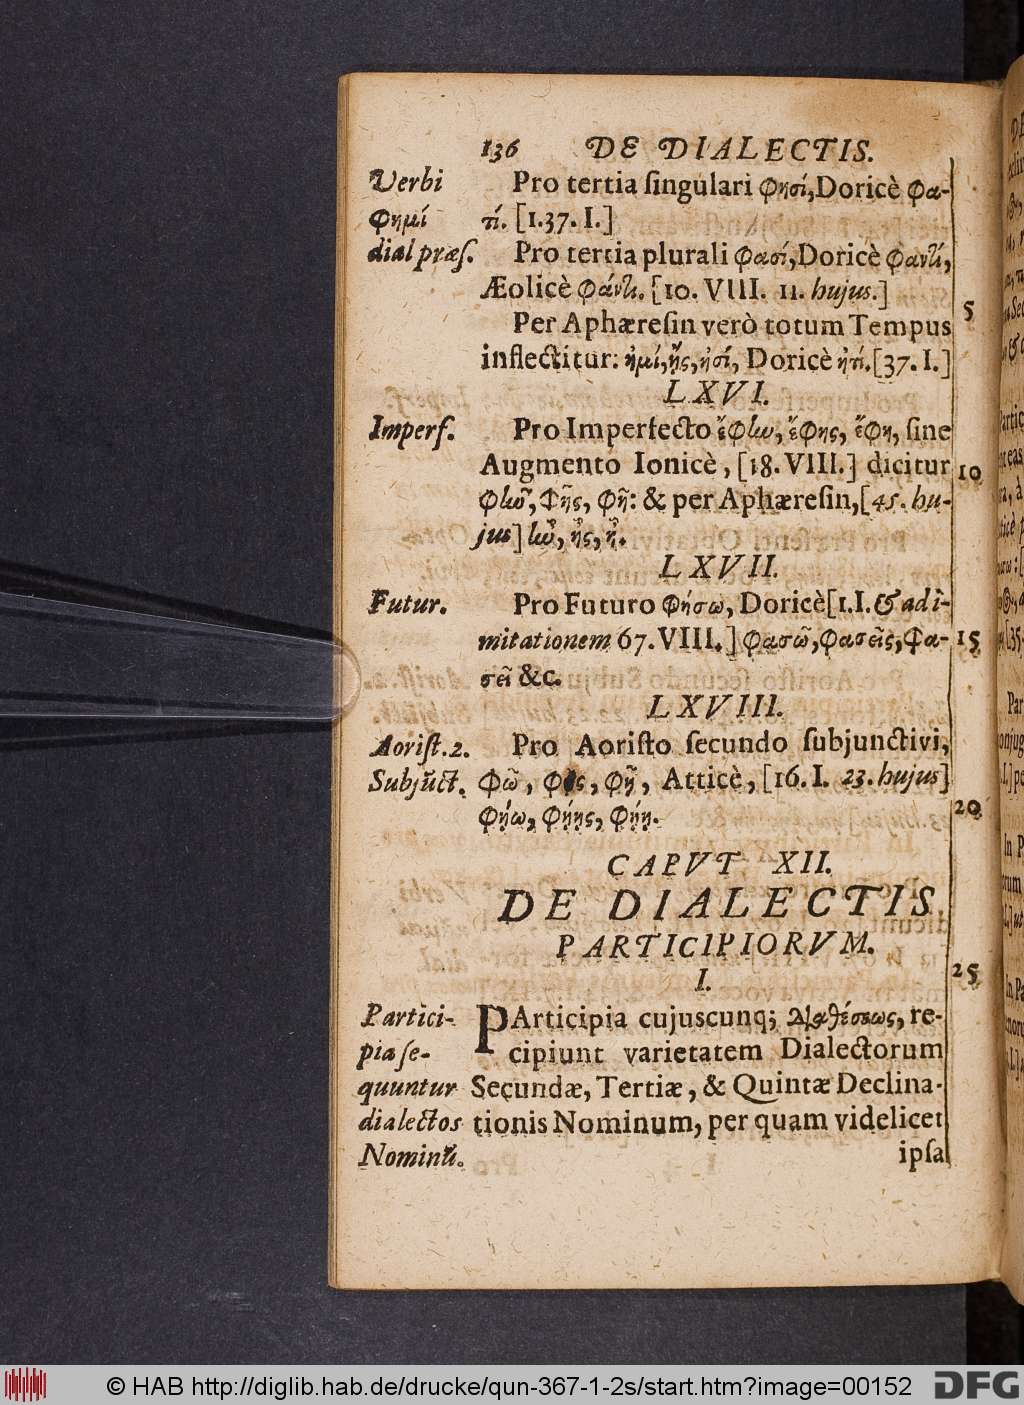 136 DE DIALECTIS.
Verbi Pro tertia ſingulari φησί, Doricè φα-
φημί τί. [1.37. I.]
dial præſ. Pro tertia plurali φασί, Doricè φαντί,
Æolicè φάντι. [10. VIII. 11. hujus.]
5
Per Aphæreſin verò totum Tempus
inflectitur: ἠμί, ᾔς, ἠσί, Doricè ἠτί. [37. I.]
LXVI.
Imperf. Pro Imperfecto ἔφlω, ἔφης, ἔφη, ſine
Augmento Ionicè, [18. VIII.] dicitur 10
φlῶ, φῆς, φῆ: & per Aphæreſin, [45. hu-
jus] lὦ, ἦς, ἦ.
LXVII.
Futur. Pro Futuro φήσω, Doricè [1. I. & ad i-
mitationem 67. VIII.] φασῶ, φασεῖς, φα- 15
σεῖ &c.
LXVIII.
Aoriſt. 2. Pro Aoriſto ſecundo ſubjunctivi,
Subjūct. φῶ, φῇς, φῇ, Atticè, [16. I. 23. hujus]
φήω, φήῃς, φήῃ. 20
CAPVT XII.
DE DIALECTIS
PARTICIPIORVM.
I. 25
Partici- PArticipia cujuscunq; διαθέσεως, re-
pia ſe- cipiunt varietatem Dialectorum
quuntur Secundæ, Tertiæ, & Quintæ Declina-
dialectos tionis Nominum, per quam videlicet
Nominū. ipſa
© HAB http://diglib.hab.de/drucke/qun-367-1-2s/start.htm?image=00152 DFG